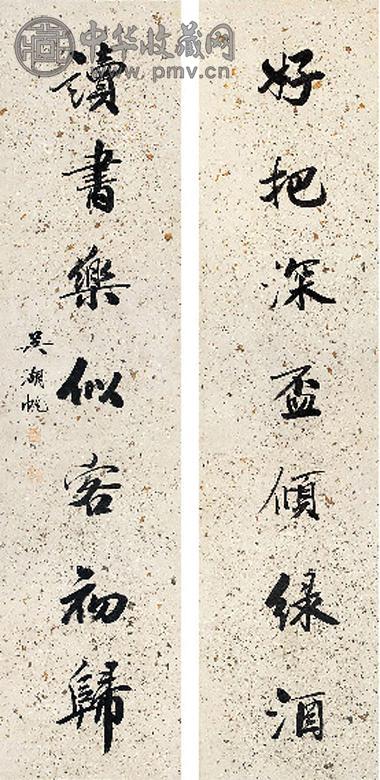 好把深盃傾綠酒
讀書樂似客初歸
吳湖帆
中华收藏网
www.pmv.cn